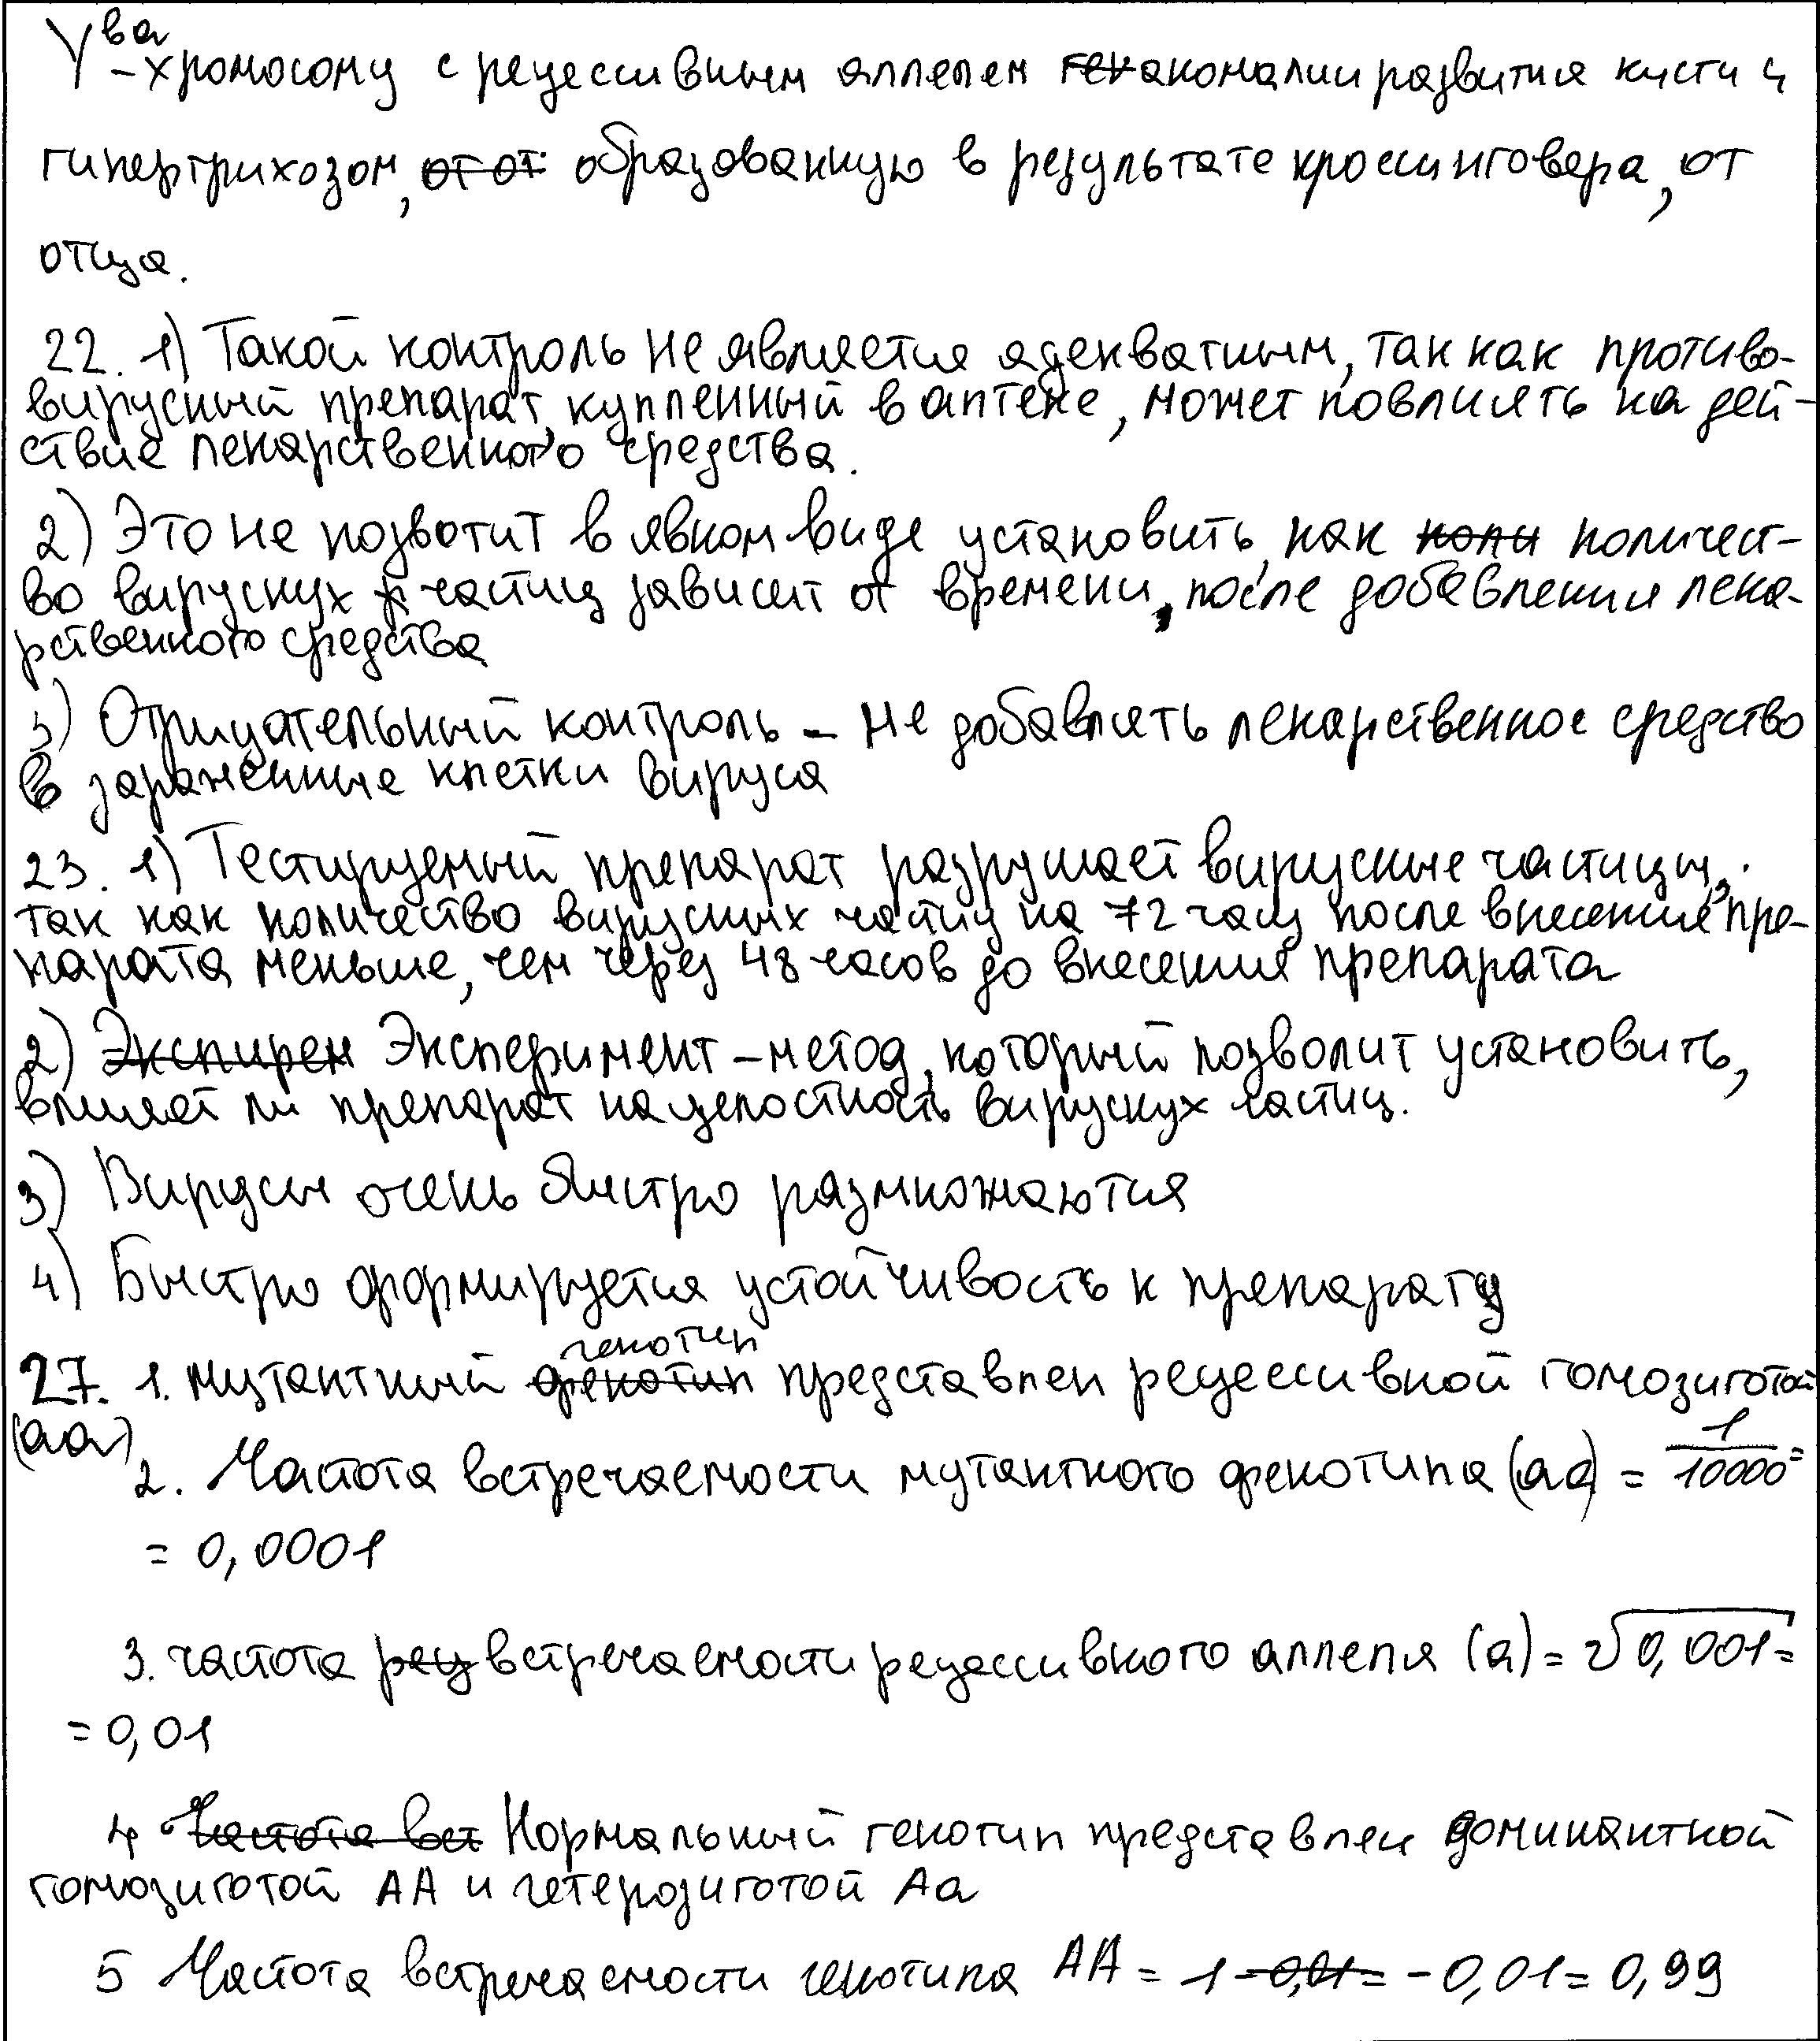 Y^ва -хромосому с рецессивным аллелем ген аномалии развития кисти и
гипертрихозом, от от образованную в результате кроссинговера, от
отца.
22. 1) Такой контроль не является адекватным, так как противо-
вирусный препарат, купленный в аптеке, может повлиять на дей-
ствие лекарственного средства.
2) Это не позволит в явном виде установить, как коли количест-
во вирусных частиц зависит от времени, после добавления лека-
рственного средства
3) Отрицательный контроль - не добавлять лекарственное средство
в зараженные клетки вируса
23. 1) Тестируемый препарат разрушает вирусные частицы,
так как количество вирусных частиц на 72 часу после внесения пре-
парата меньше, чем через 48 часов до внесения препарата
2) Экспирем Эксперимент - метод, который позволит установить,
влияет ли препарат на целостность вирусных частиц.
3) Вирусы очень быстро размножаются
4) Быстро формируется устойчивость к препарату
генотип
27. 1. Мутантный фенотип представлен рецессивной гомозиготой
(аа)
2. Частота встречаемости мутантного фенотипа (аа) = 1/10000 =
= 0,0001
3. частота рец встречаемости рецессивного аллеля (а) = √0,001 =
= 0,01
4 Частота вст Нормальный генотип представлен доминантной
гомозиготой АА и гетерозиготой Аа
5 Частота встречаемости генотипа АА = 1 - 0,01 = - 0,01 = 0,99